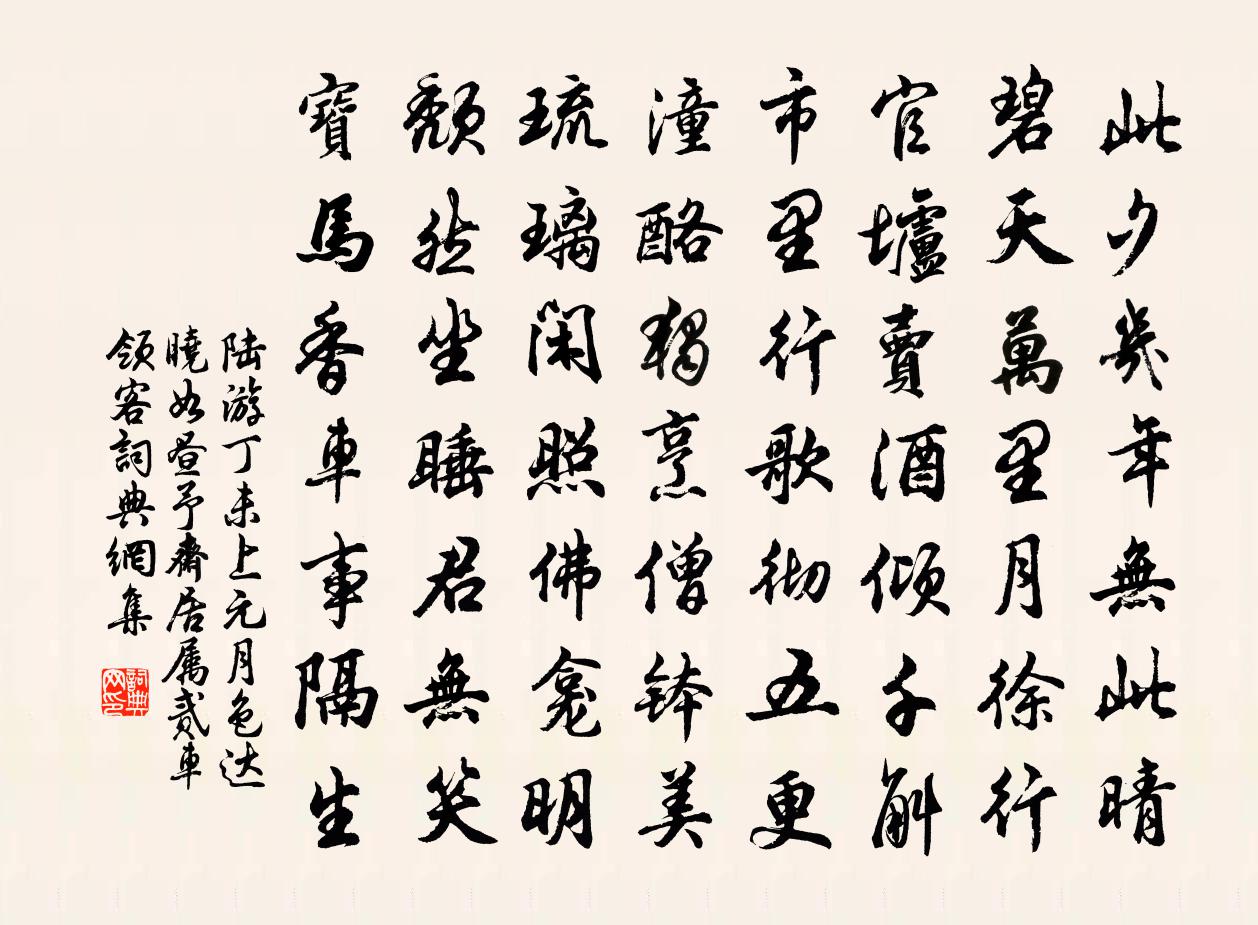 此夕幾年無此晴
碧天萬里月徐行
官壚賣酒傾千斛
市里行歌彻五更
潼酪獨烹僧钵美
琉璃閑照佛龛明
頹然坐睡君無笑
寶馬香車事隔生
陆游丁未上元月色达
曉如晝予齋居属贰車
領客詞典網集
詞典网印